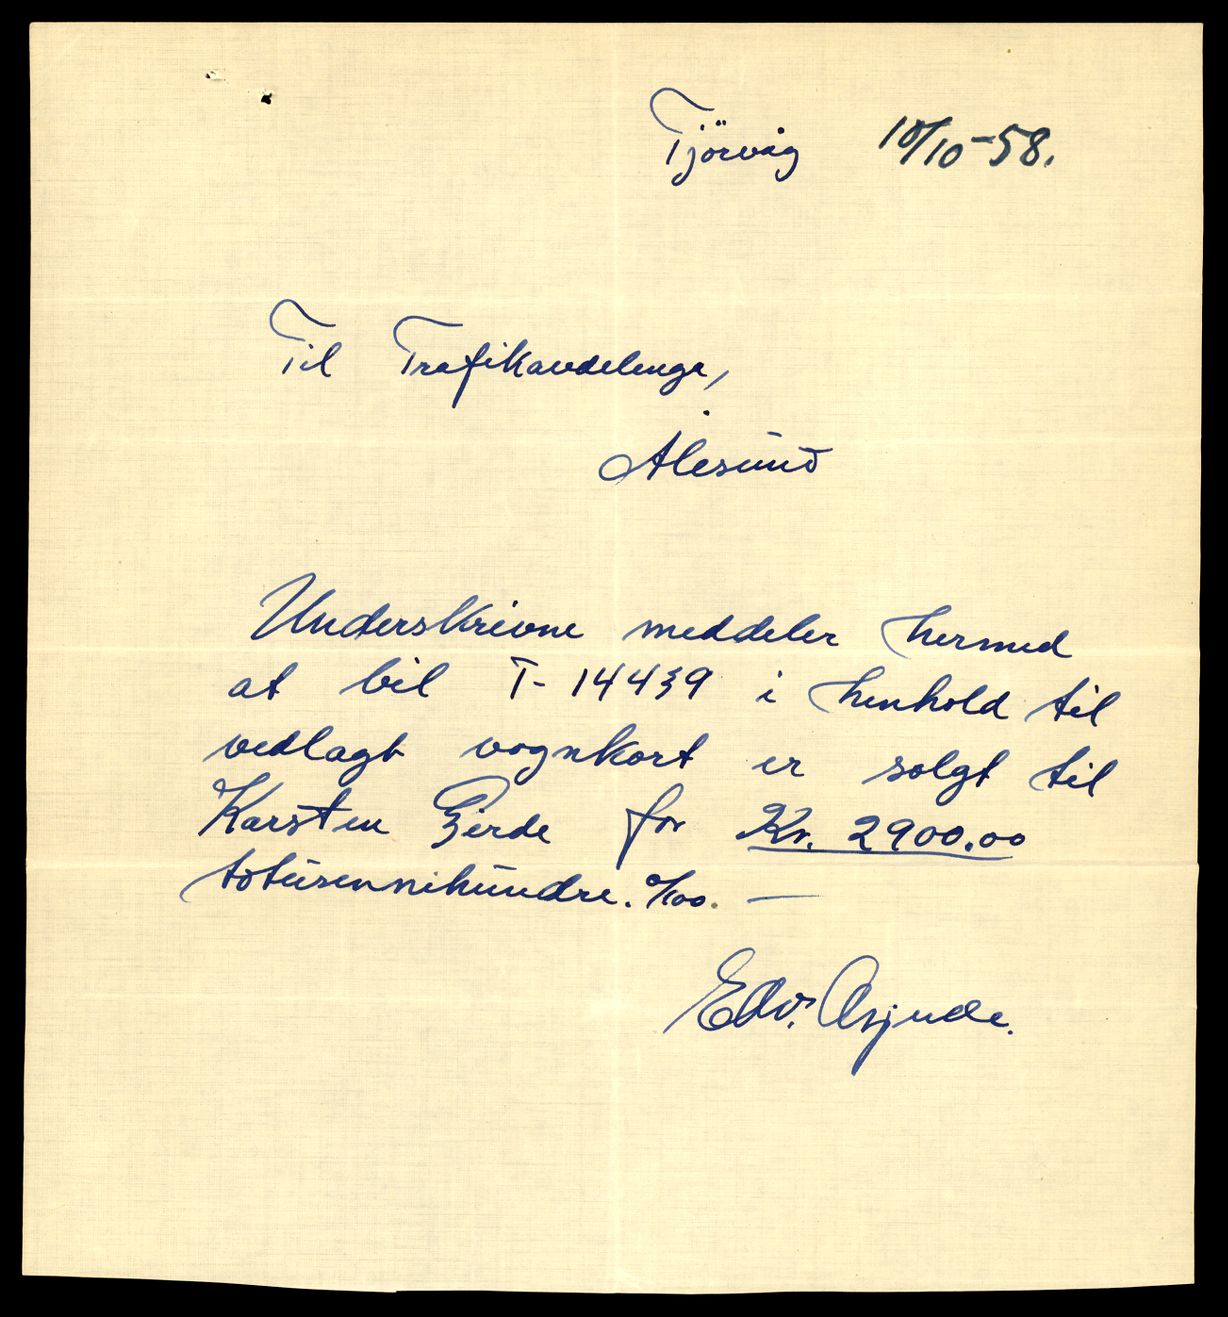 Tjörvåg 10/10-58.
Til Trafikavdelinga,
Ålesund
Underskrivne meddeler hermed
at bil T- 14439 i henhold til
vedlagt vognkort er solgt til
Karsten Gjerde for Kr. 2900.00
totusennihundre. 0/00. —
Edv.